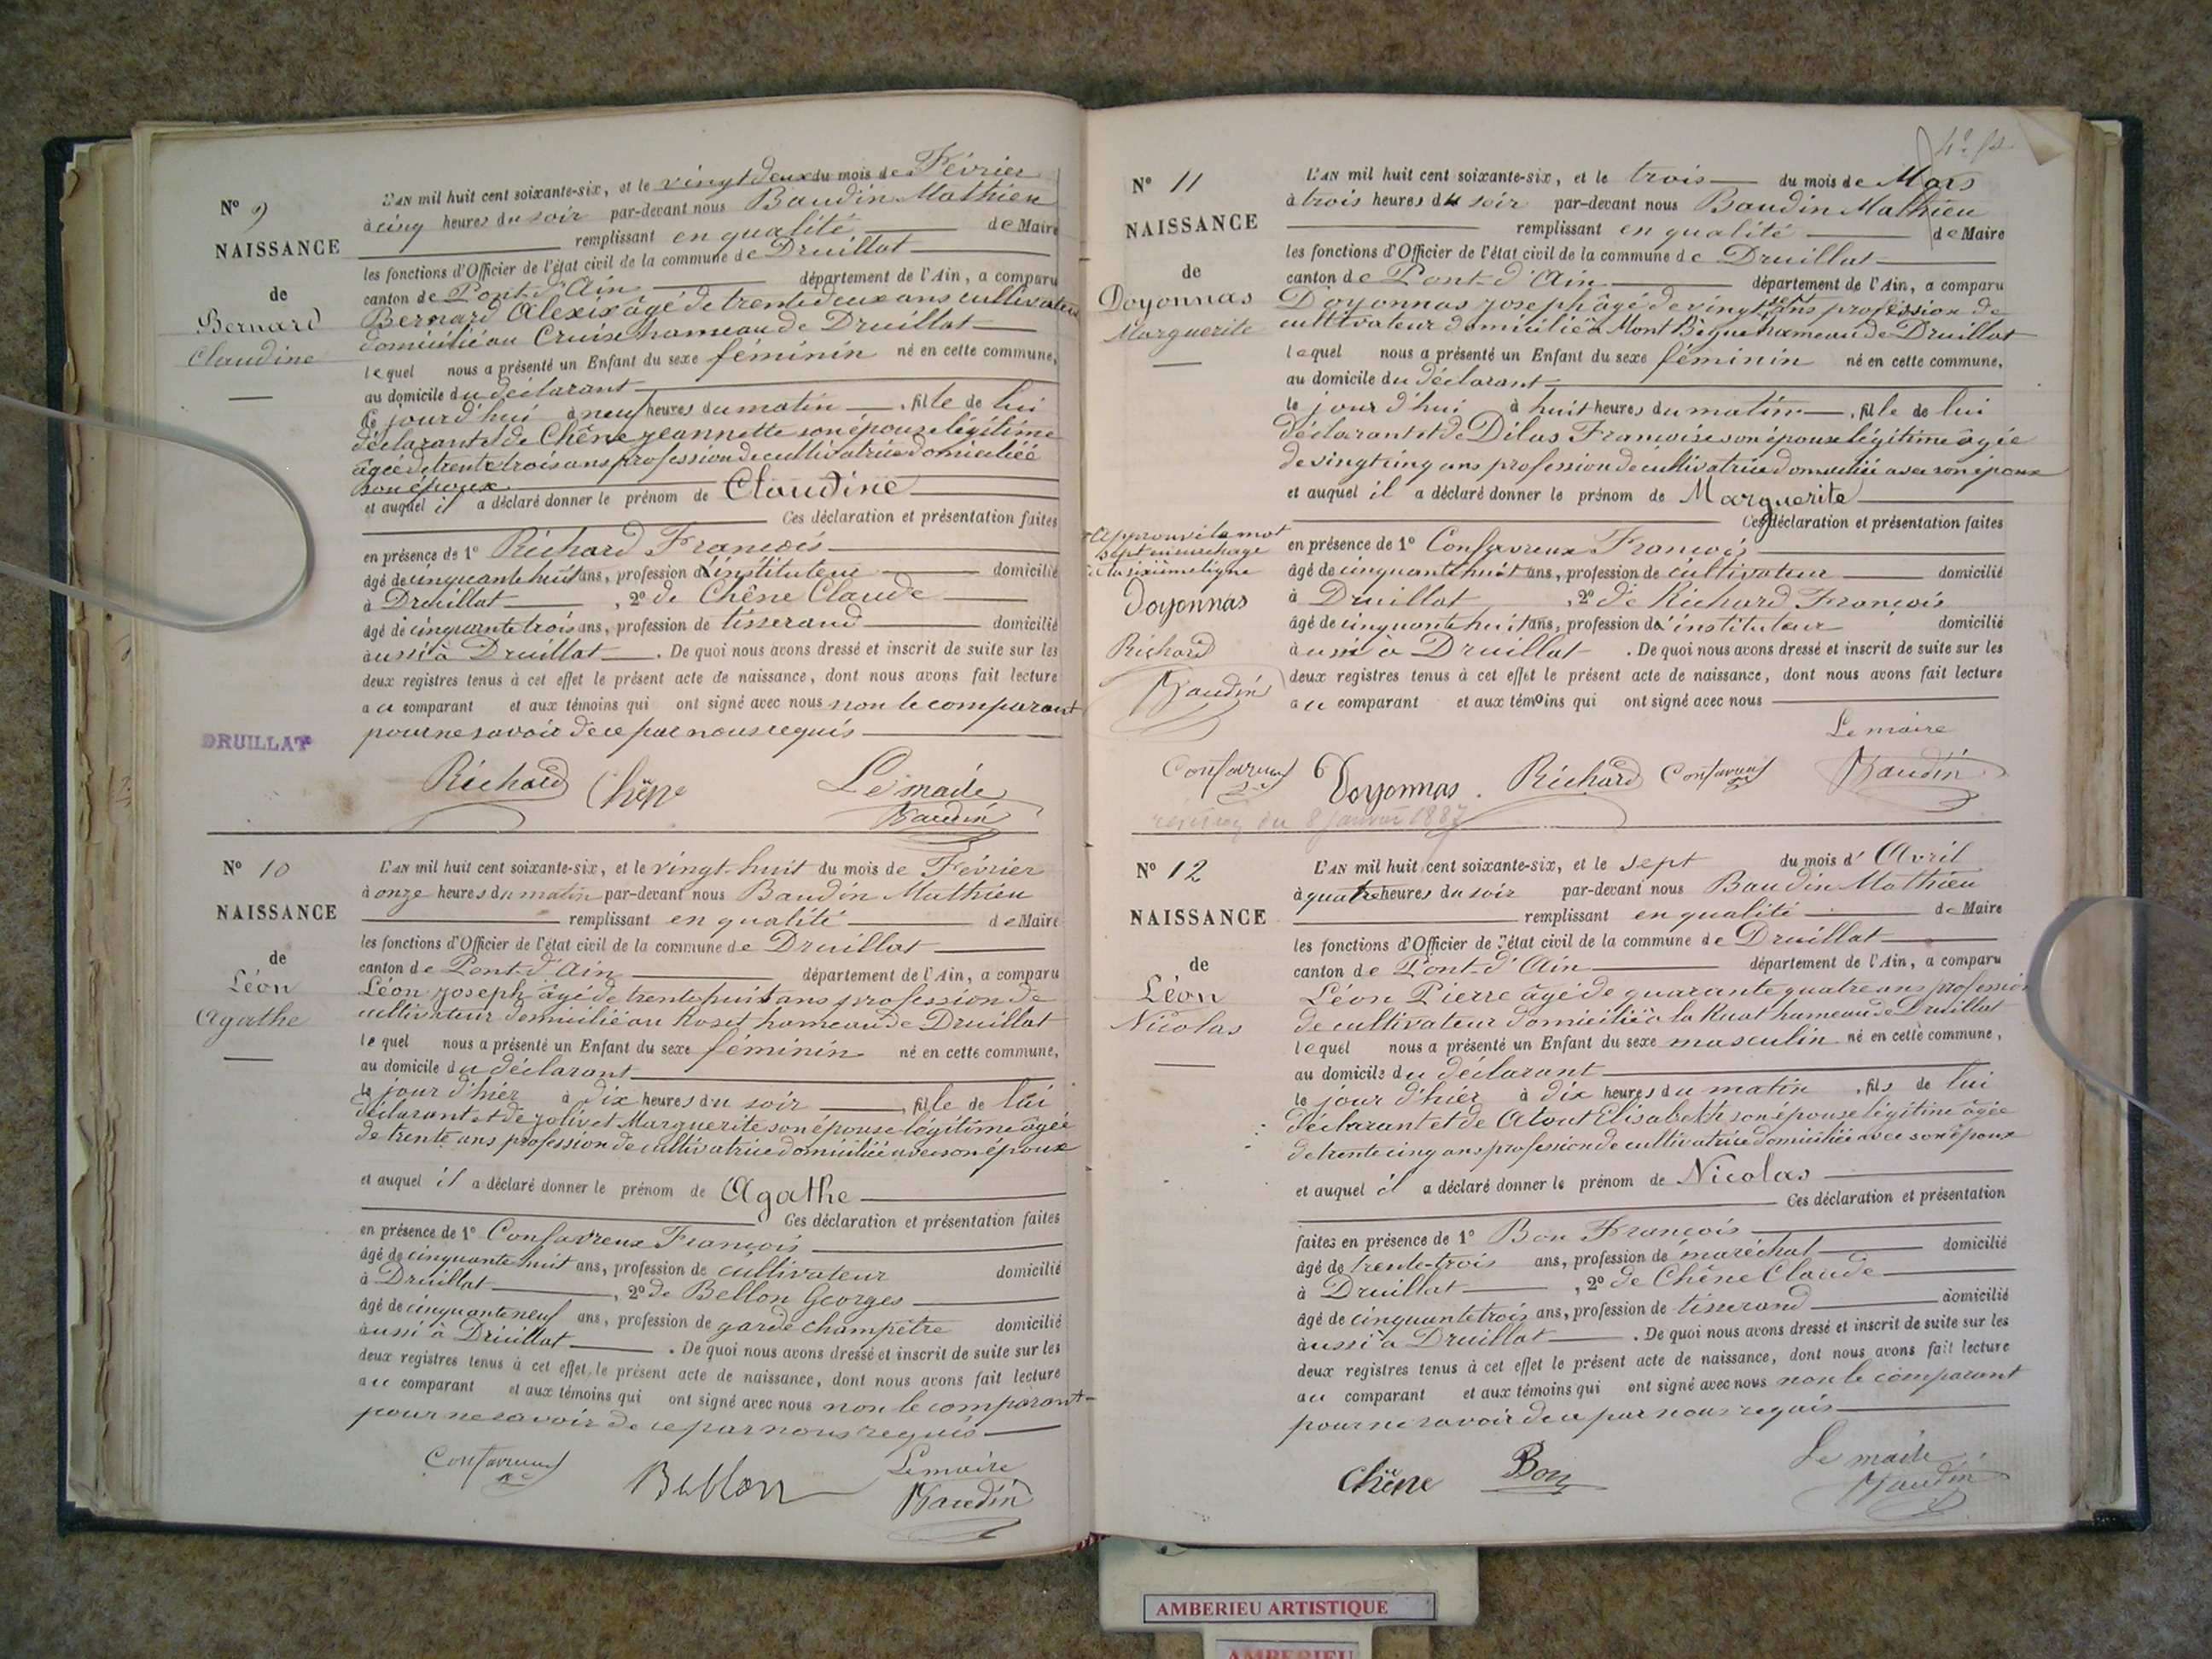 N° 9
NAISSANCE
de
Bernard
Claudine
L'AN mil huit cent soixante-six, et le vingt deux du mois de Février
à cinq heures du soir par-devant nous Baudin Mathieu
remplissant en qualité de Maire
les fonctions d'Officier de l'état civil de la commune de Druillat
canton de Pont-d'Ain département de l'Ain, a comparu
Bernard Alexix âgé de trente deux ans cultivateur
domicilié au Cruix hameau de Druillat
lequel nous a présenté un Enfant du sexe féminin né en cette commune,
au domicile du déclarant
le jour d'hui à neuf heures du matin, fille de lui
déclarant et de Chêne Jeannette son épouse légitime
âgée de trente trois ans profession de cultivatrice domiciliée
son époux
et auquel il a déclaré donner le prénom de Claudine
Ces déclaration et présentation faites
en présence de 1° Richard François
âgé de cinquante huit ans, profession d'instituteur domicilié
à Druillat, 2° de Chêne Claude
âgé de cinquante trois ans, profession de tisserand domicilié
aussi à Druillat. De quoi nous avons dressé et inscrit de suite sur les
deux registres tenus à cet effet le présent acte de naissance, dont nous avons fait lecture
au comparant et aux témoins qui ont signé avec nous non le comparant
pour ne savoir de ce par nous requis
DRUILLAT
Richard Chêne Le maire
Baudin
N° 10
NAISSANCE
de
Léon
Agathe
L'AN mil huit cent soixante-six, et le vingt-huit du mois de Février
à onze heures du matin par-devant nous Baudin Mathieu
remplissant en qualité de Maire
les fonctions d'Officier de l'état civil de la commune de Druillat
canton de Pont-d'Ain département de l'Ain, a comparu
Léon Joseph âgé de trente huit ans profession de
cultivateur domicilié au Roset hameau de Druillat
lequel nous a présenté un Enfant du sexe féminin né en cette commune,
au domicile du déclarant
le jour d'hier à dix heures du soir, fille de lui
déclarant et de Jolivet Marguerite son épouse légitime âgée
de trente ans profession de cultivatrice domiciliée avec son époux
et auquel il a déclaré donner le prénom de Agathe
Ces déclaration et présentation faites
en présence de 1° Confavreux François
âgé de cinquante huit ans, profession de cultivateur domicilié
à Druillat, 2° de Bellon Georges
âgé de cinquante neuf ans, profession de garde champêtre domicilié
aussi à Druillat. De quoi nous avons dressé et inscrit de suite sur les
deux registres tenus à cet effet, le présent acte de naissance, dont nous avons fait lecture
au comparant et aux témoins qui ont signé avec nous non le comparant
pour ne savoir de ce par nous requis
Confavreux Bellon Le maire
Baudin
N° 11
NAISSANCE
de
Doyonnas
Marguerite
L'AN mil huit cent soixante-six, et le trois du mois de Mars
à trois heures du soir par-devant nous Baudin Mathieu
remplissant en qualité de Maire
les fonctions d'Officier de l'état civil de la commune de Druillat
canton de Pont-d'Ain département de l'Ain, a comparu
Doyonnas Joseph âgé de vingt sept ans profession de
cultivateur domicilié à Mont Bègue hameau de Druillat
lequel nous a présenté un Enfant du sexe féminin né en cette commune,
au domicile du déclarant
le jour d'hui à huit heures du matin, fille de lui
déclarant et de Dilas Françoise son épouse légitime âgée
de vingt cinq ans profession de cultivatrice domiciliée avec son époux
et auquel il a déclaré donner le prénom de Marguerite
Ces déclaration et présentation faites
en présence de 1° Confavreux François
âgé de cinquante huit ans, profession de cultivateur domicilié
à Druillat, 2° de Richard François
âgé de cinquante huit ans, profession d'instituteur domicilié
aussi à Druillat. De quoi nous avons dressé et inscrit de suite sur les
deux registres tenus à cet effet le présent acte de naissance, dont nous avons fait lecture
au comparant et aux témoins qui ont signé avec nous
Approuvé le mot
sept en surchage
à la sixième ligne
Doyonnas
Richard
Baudin
Confavreux
Le maire
Doyonnas Richard Confavreux Baudin
du 8 Janvier 1887
N° 12
NAISSANCE
de
Léon
Nicolas
L'AN mil huit cent soixante-six, et le sept du mois d'Avril
à quatre heures du soir par-devant nous Baudin Mathieu
remplissant en qualité de Maire
les fonctions d'Officier de l'état civil de la commune de Druillat
canton de Pont-d'Ain département de l'Ain, a comparu
Léon Pierre âgé de quarante quatre ans profession
de cultivateur domicilié à la Ruat hameau de Druillat
lequel nous a présenté un Enfant du sexe masculin né en cette commune,
au domicile du déclarant
le jour d'hier à dix heures du matin, fils de lui
déclarant et de Atout Elisabeth son épouse légitime âgée
de trente cinq ans profession de cultivatrice domiciliée avec son époux
et auquel il a déclaré donner le prénom de Nicolas
Ces déclaration et présentation
faites en présence de 1° Bon François
âgé de trente-trois ans, profession de maréchal domicilié
à Druillat, 2° de Chêne Claude
âgé de cinquante trois ans, profession de tisserand domicilié
aussi à Druillat. De quoi nous avons dressé et inscrit de suite sur les
deux registres tenus à cet effet le présent acte de naissance, dont nous avons fait lecture
au comparant et aux témoins qui ont signé avec nous non le comparant
pour ne savoir de ce par nous requis
Chêne Bon Le maire
Baudin
AMBERIEU ARTISTIQUE
AMBERIEU